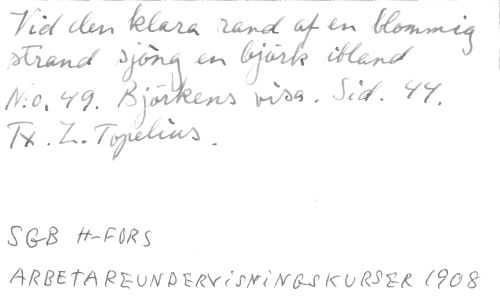 Vid den klara rand af en blommig
strand sjöng en björk ibland
N:o. 49. Björkens visa. Sid. 44.
Tx. Z. Topelius.
SGB H-FORS
ARBETAREUNDERVISNINGSKURSER 1908